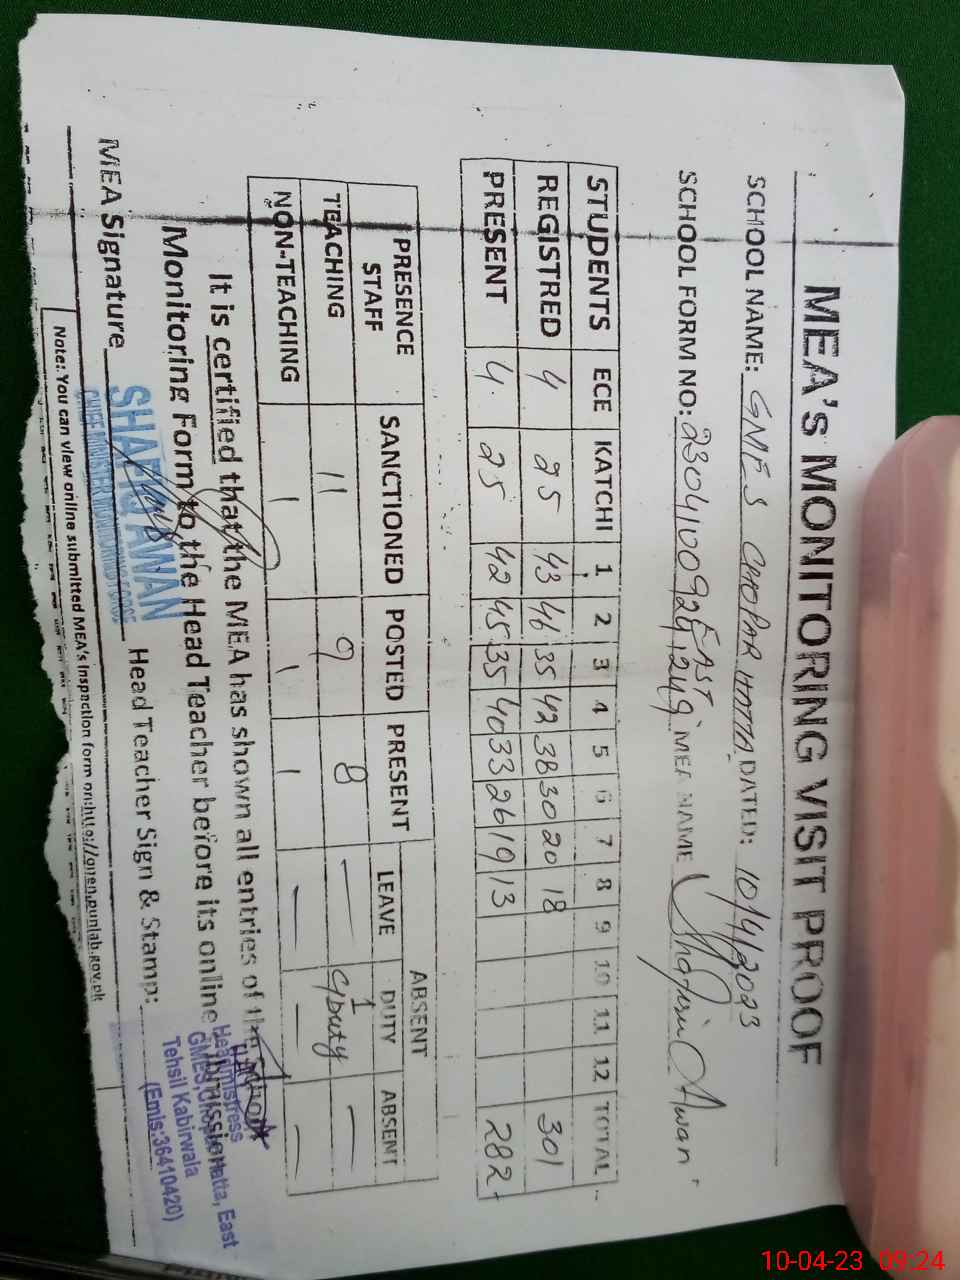 MEA's MONITORING VISIT PROOF
SCHOOL NAME: GMES CHOPAR HATTA EAST DATED: 10/4/2023
SCHOOL FORM NO: MEA NAME Shafiq Awan
STUDENTS ECE KATCHI 1 2 3 4 5 6 7 8 9 10 11 12 TOTAL
REGISTRED 4 25 43 46 35 42 38 30 20 18 301
PRESENT 4 25 42 45 35 40 33 26 19 13 282
PRESENCE STAFF SANCTIONED POSTED PRESENT ABSENT
LEAVE DUTY ABSENT
TEACHING 11 9 8 — 1 C/Duty —
NON-TEACHING 1 1 1 — — —
It is certified that the MEA has shown all entries of the
Monitoring Form to the Head Teacher before its online submission
MEA Signature Head Teacher Sign & Stamp:
SHAFIQ AWAN
CHIEF MINISTER MONITORING FORCE
Headmistress
GMES, Chopar Hatta, East
Tehsil Kabirwala
(Emis:36410420)
Note: You can view online submitted MEA's Inspection form on:http://open.punjab.gov.pk
10-04-23 09:24